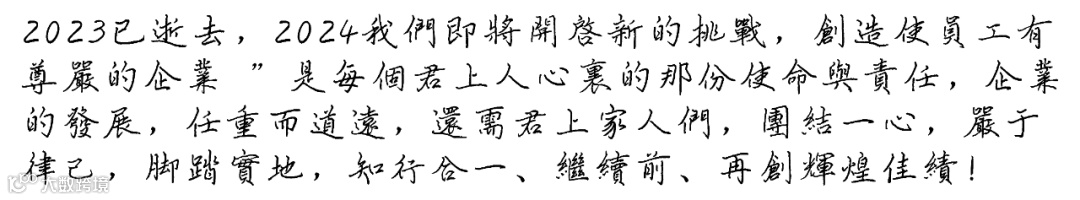 2023已逝去，2024我們即將開啓新的挑戰，創造使員工有
尊嚴的企業 ”是每個君上人心裏的那份使命與責任，企業
的發展，任重而道遠，還需君上家人們，團結一心，嚴于
律己，脚踏實地，知行合一、繼續前、再創輝煌佳績！
大數跨境